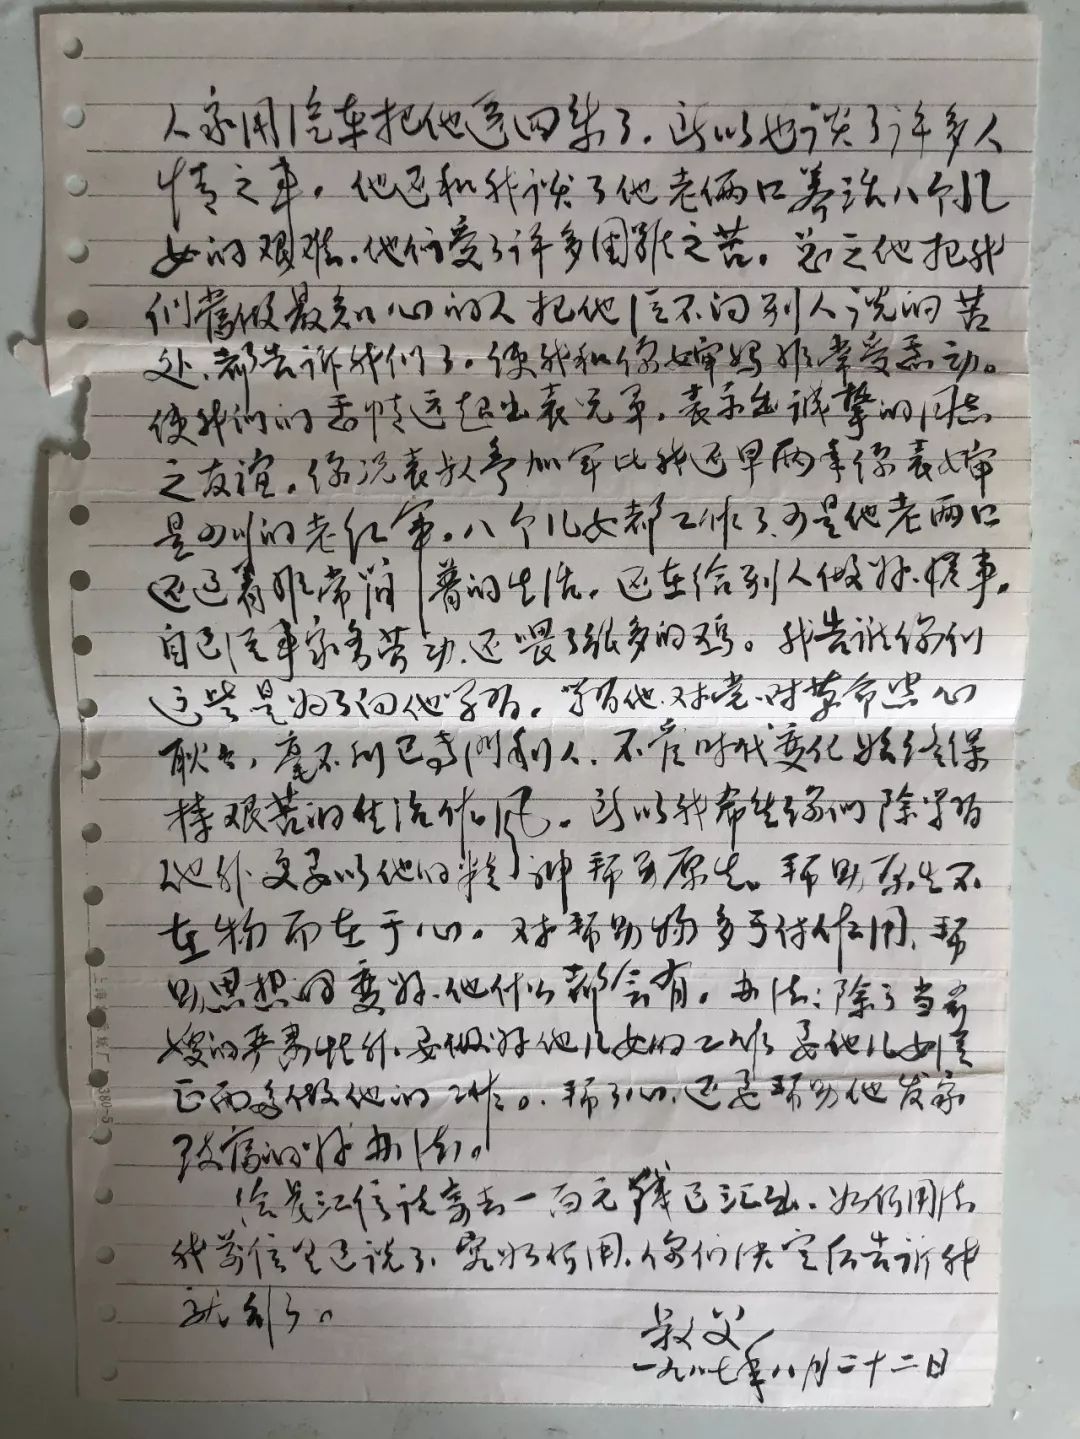 人家用汽车把他送回来了。所以也谈了许多人
情之事。他还和我谈了他老俩口养活八个儿
女的艰难。他们受了许多困难之苦。总之他把我
们当做最知心的人把他从不向别人说的苦
处、都告诉我们了。使我和你婶妈非常受感动。
使我们的感情远超出表兄弟。表示出诚挚的同志
之友谊。你况表叔参加军比我还早两年你表婶
是四川的老红军。八个儿女都工作了可是他老两口
还过着非常简普的生活。还在给别人做好事。
自己从事家务劳动、还喂了很多的鸡。我告诉你们
这些是为了向他学习。学习他对党对革命忠心
耿耿，毫不利己专门利人、不管时代变化始终保
持艰苦的生活作风。所以我希望你们除学习
他外更要以他的精神帮助原生。帮助原生不
在物而在于心。对帮助物多于作用、帮
助思想的变好、他什么都会有。办法：除了当
嫂的严肃性外、要做好他儿女的工作要他儿女
正面多做他的工作。帮了心、还要帮助他发家
致富的好办法。
给茂江信说寄去一百元钱已汇出、如何用法
我前信里已说了、究如何用、你们决定后告诉我
就行了。
叔父
一九八七年八月二十二日
上海
380-5